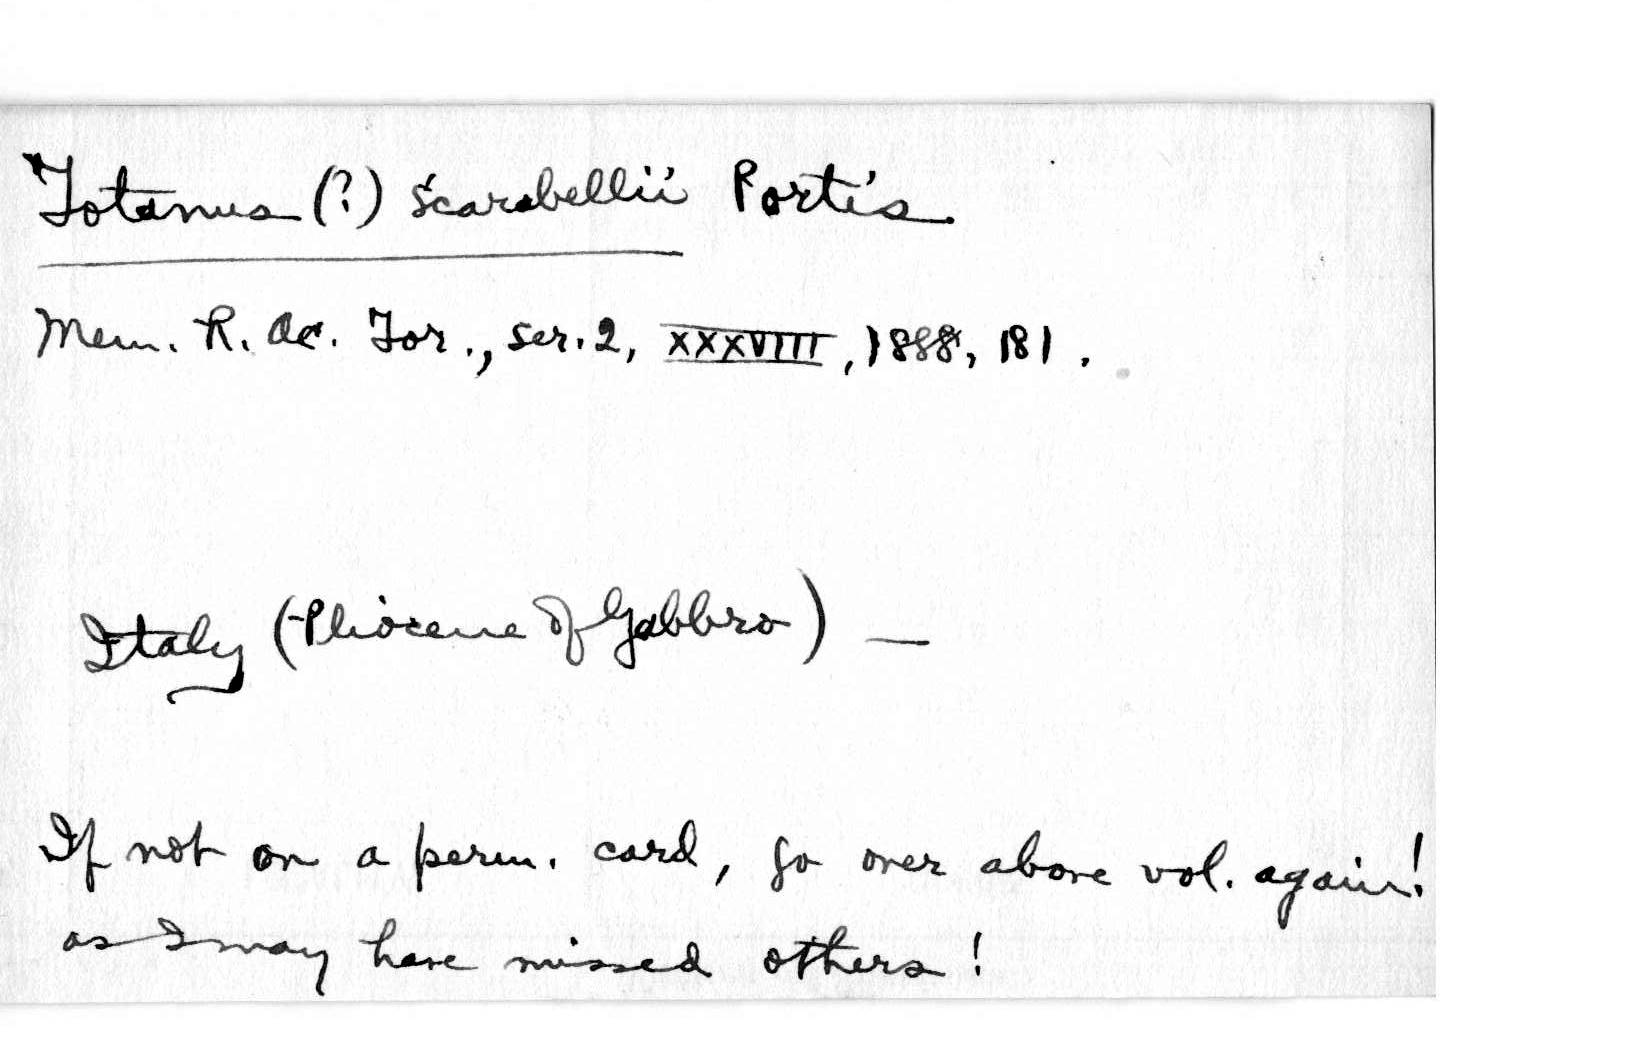 Totanus (?) scarabellii Portis.
Mem. R. Ac. Tor., ser. 2, XXXVIII, 1888, 181.
Italy (Pliocene of Gabbro) —
If not on a perm. card, go over above vol. again!
as I may have missed others!